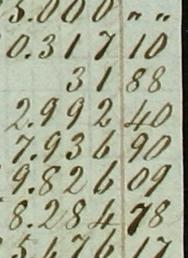 5.000 „ „
0.317 10
31 88
2.992 40
7.936 90
9.826 09
8.284 78
5.676 17